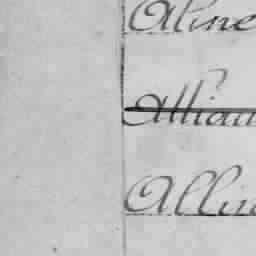 Aline
Allian
Allin